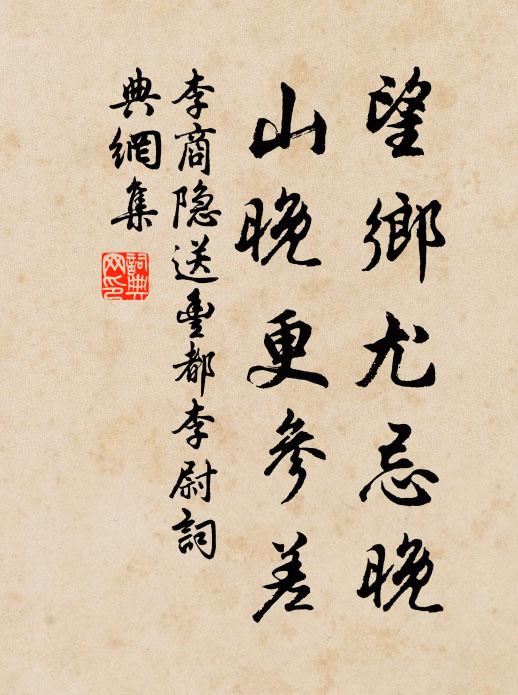 望鄉尤忌晚
山晚更參差
李商隐送豊都李尉詞
典網集
詞典
网印